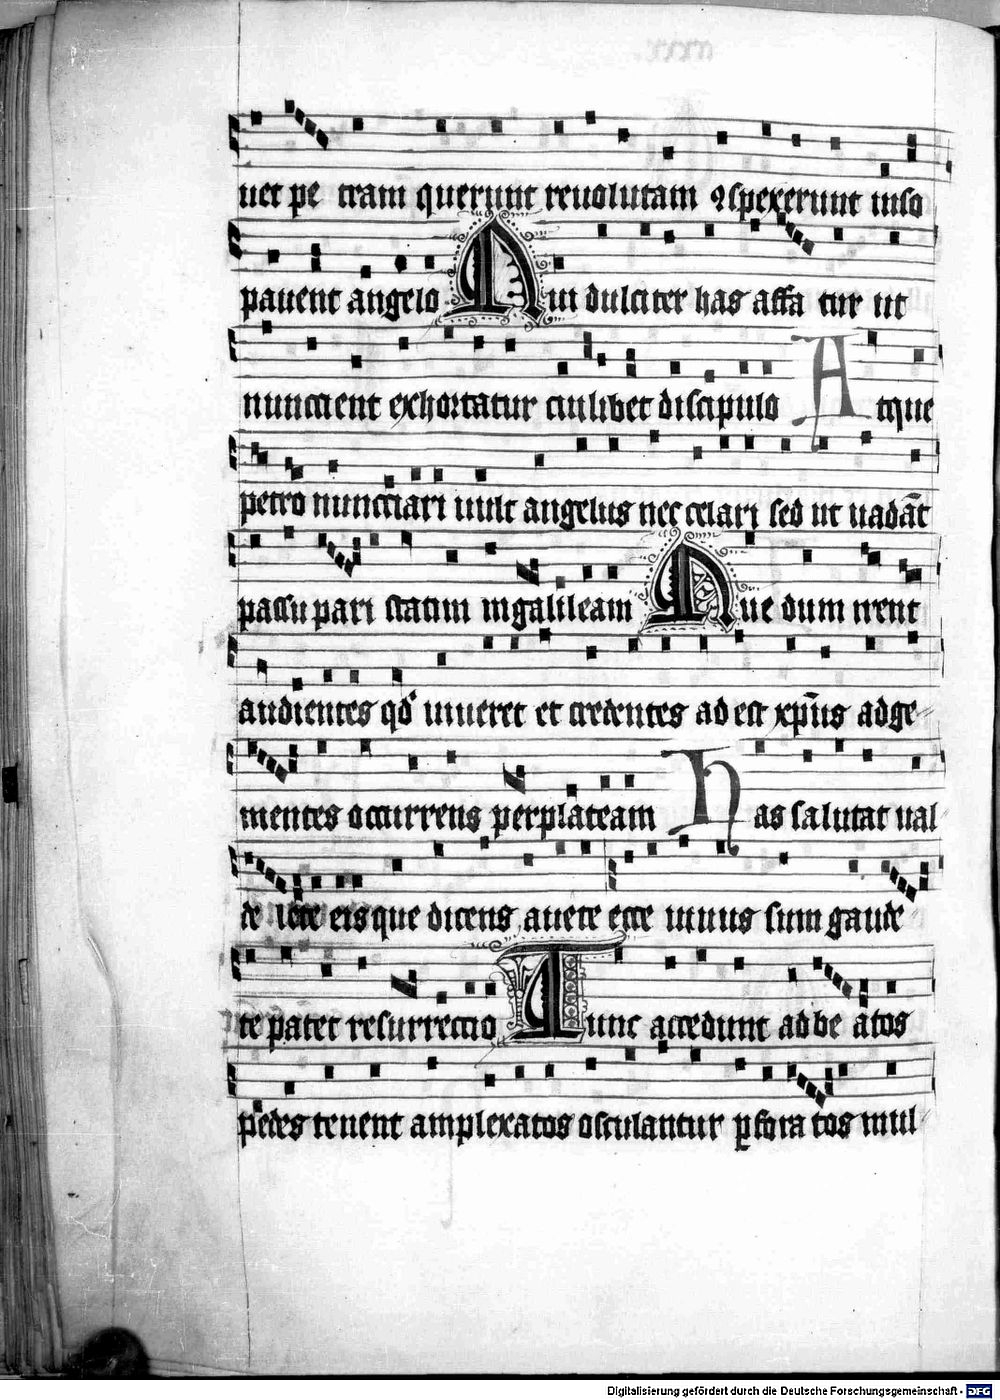 uet pe tram querunt reuolutam ꝯspexerunt inso
pauent angelo Qui dulciter has affa tur ut
nunccient exhortatur cuilibet discipulo Atque
petro nuncciari uult angelus nec celari sed ut uadāt
passu pari statim ingalileam Que dum irent
audientes qd' uiueret et credentes ad est xp̄us adge
mentes occurrens perplateam Has salutat ual
de icte eis que dicens auete ecce uiuus sum gaude
te patet resurreccio Tunc accedunt ad be atos
pedes tenent amplexatos osculantur ꝑfora tos mul
Digitalisierung gefördert durch die Deutsche Forschungsgemeinschaft - DFG